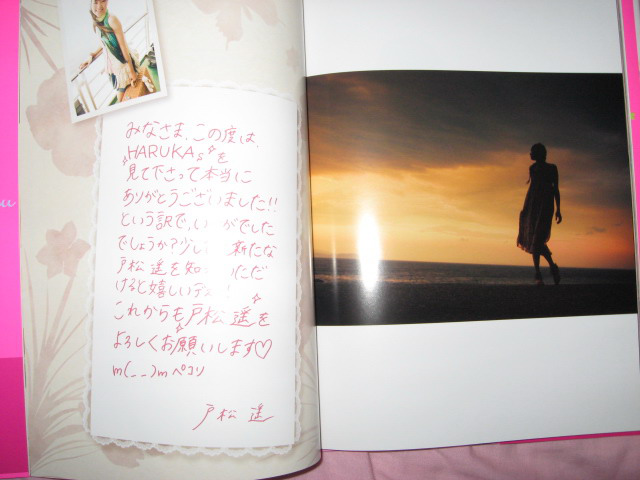 みなさま、この度は、
HARUKAsを
見て下さって本当に
ありがとうございました!!
という訳で、い がでした
でしょうか?少し 新たな
戸松 遥を知 ただ
けると嬉しいデス
これからも戸松 遥を
よろしくお願いします♡
m(_ _)m ペコリ
戸松 遥